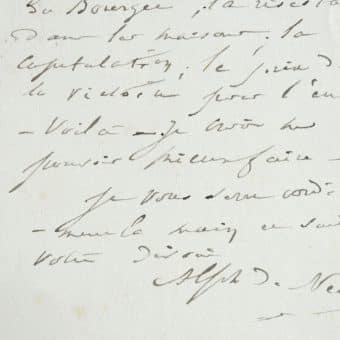 du Bourget, la résista
dans les maisons, la
capitulation, le prix d
la victoire pour l'en
- Voilà - Je crois ne
pouvoir mieux faire -
Je vous serre cordi
- ment la main et suis
votre dévoué
Alph de Neu